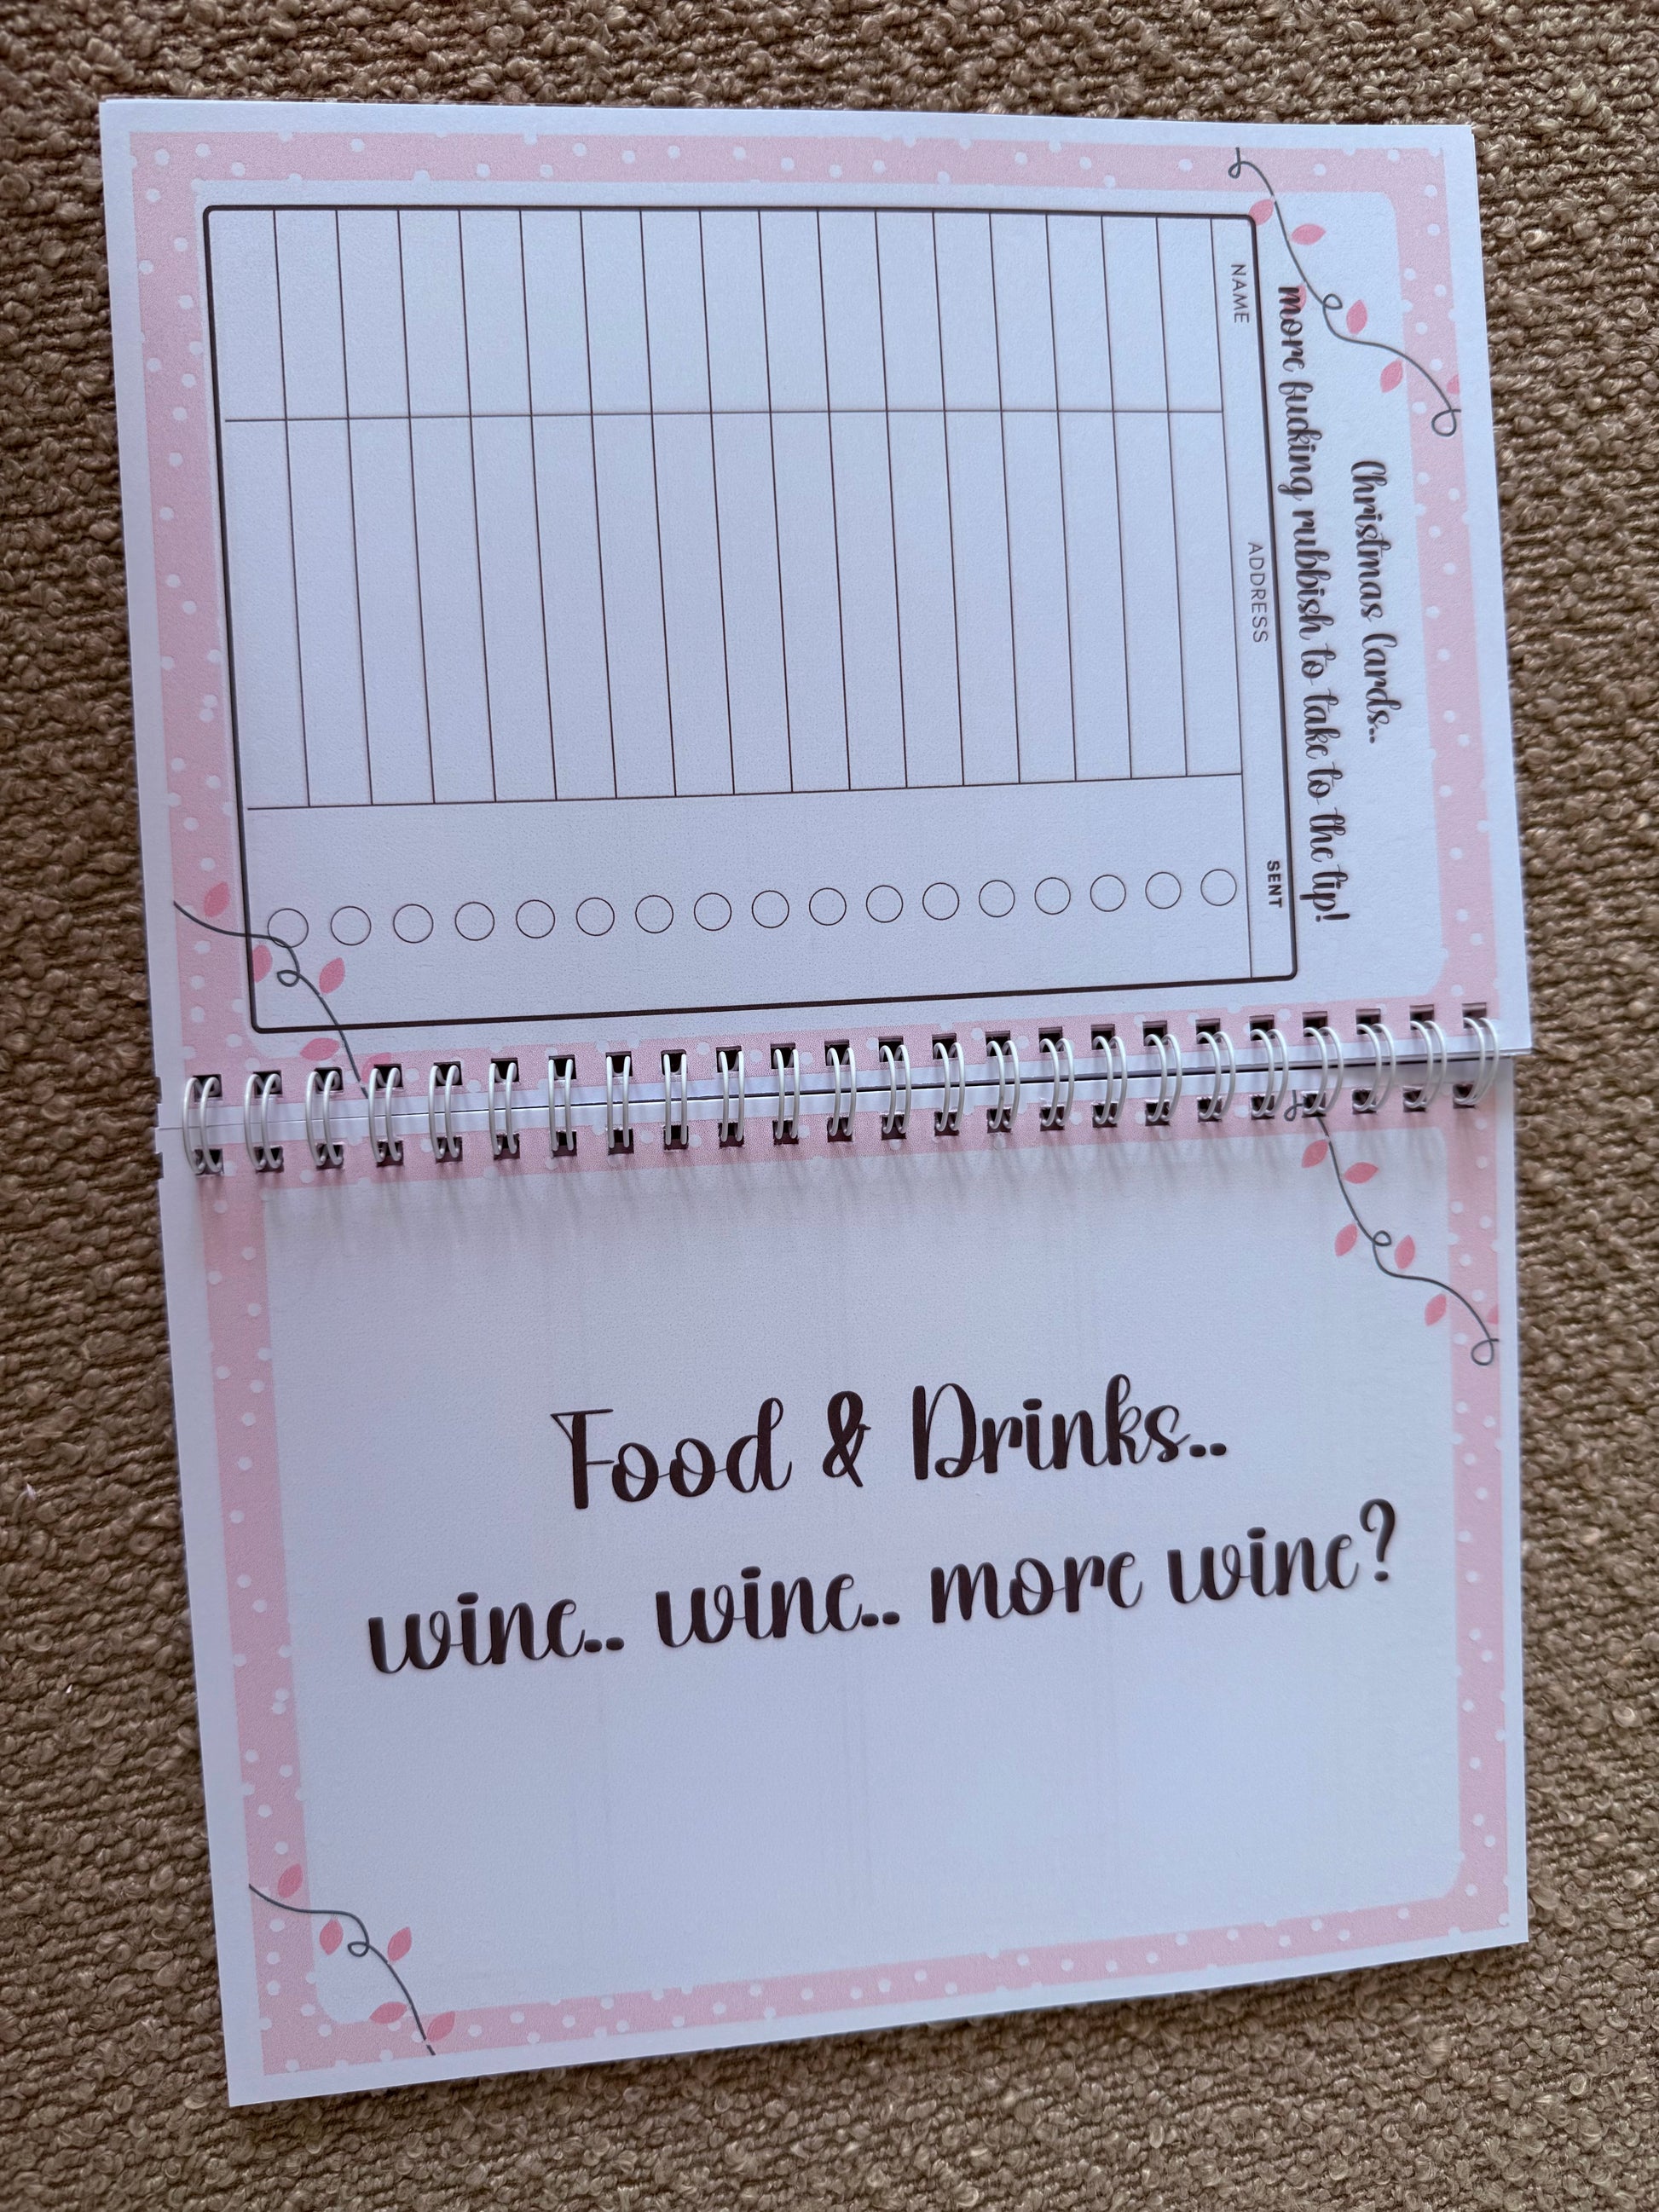 Christmas Cards..
more fucking rubbish to take to the tip!
NAME ADDRESS SENT
Food & Drinks..
wine.. wine.. more wine?